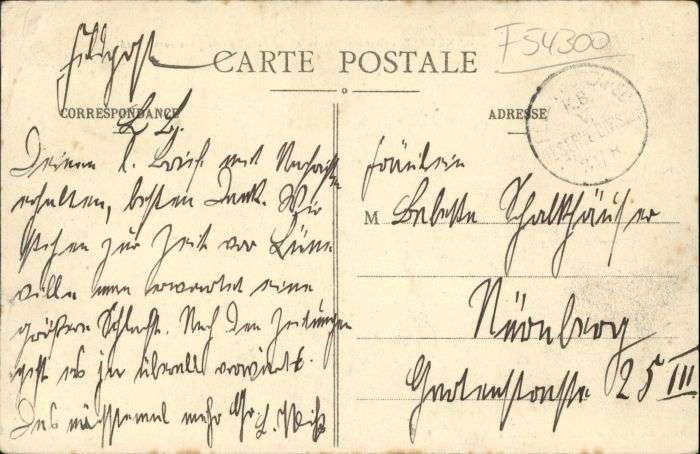 Feldpost
CARTE POSTALE
F 54300
CORRESPONDANCE
ADRESSE
K.B.
L. B.
Deinen l. Brief mit Nachricht
erhalten, besten Dank. Wir
stehen zur Zeit vor Lüne-
ville man erwartet eine
größere Schlacht. Nach den Zeitungen
geht es ja überall vorwärts.
Das nächstemal mehr Gr. L.
Fräulein
M Babette Schalkhäußer
Nürnberg
Gartenstrasse 25 III